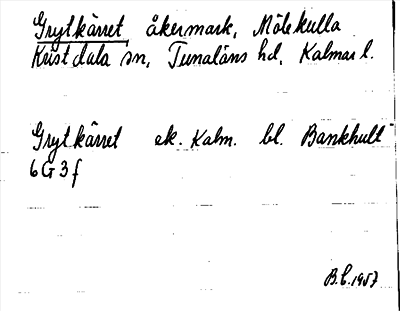 Grytkärret, åkermark, Mölekulla
Kristdala sn, Tunaläns hd, Kalmar l.
Grytkärret ek. Kalm. bl. Bankhult
6G3f
B.C. 1957